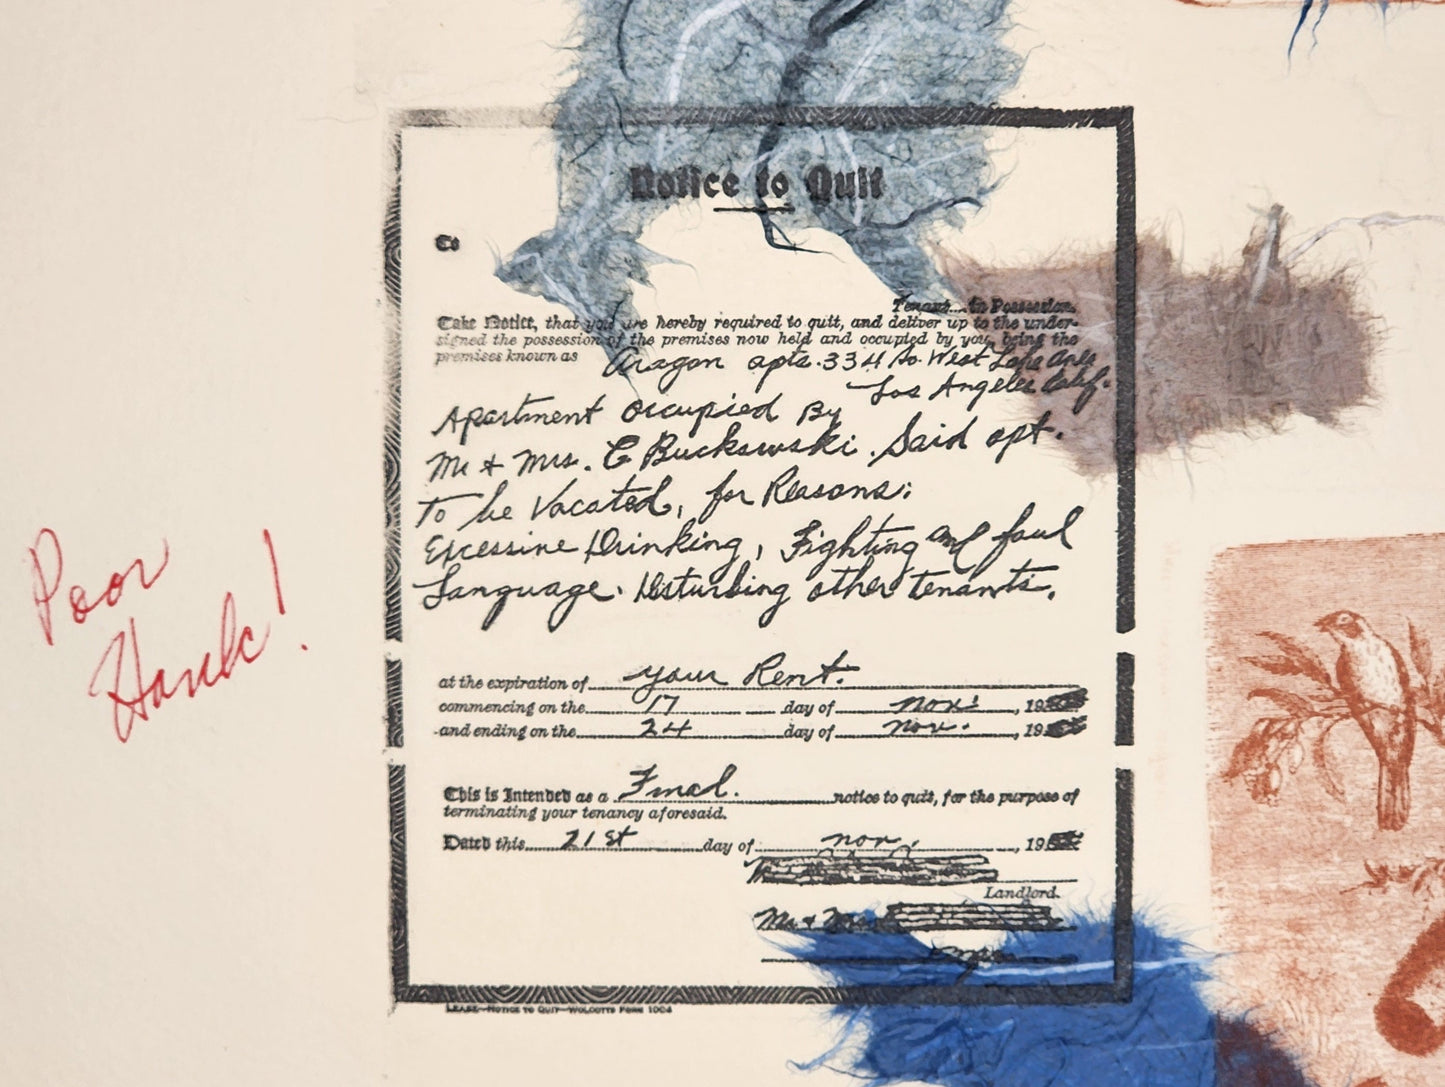 Notice to Quit
To
Tenant in Possession.
Take Notice, that you are hereby required to quit, and deliver up to the under-
signed the possession of the premises now held and occupied by you, being the
premises known as Aragon apts. 334 So. West Lake Ave
Los Angeles Calif.
Apartment occupied By
Mr + Mrs. C Buckowski. Said apt.
To be Vacated, for Reasons:
Excessive Drinking, Fighting and foul
Language. Disturbing other tenants.
at the expiration of your Rent.
commencing on the 17 day of nov. , 19
and ending on the 24 day of nov. , 19
This is Intended as a Final. notice to quit, for the purpose of
terminating your tenancy aforesaid.
Dated this 21st day of nov. , 19
Landlord.
Mr + Mrs
LEASE—NOTICE TO QUIT—WOLCOTTS FORM 1004
Poor
Hank!